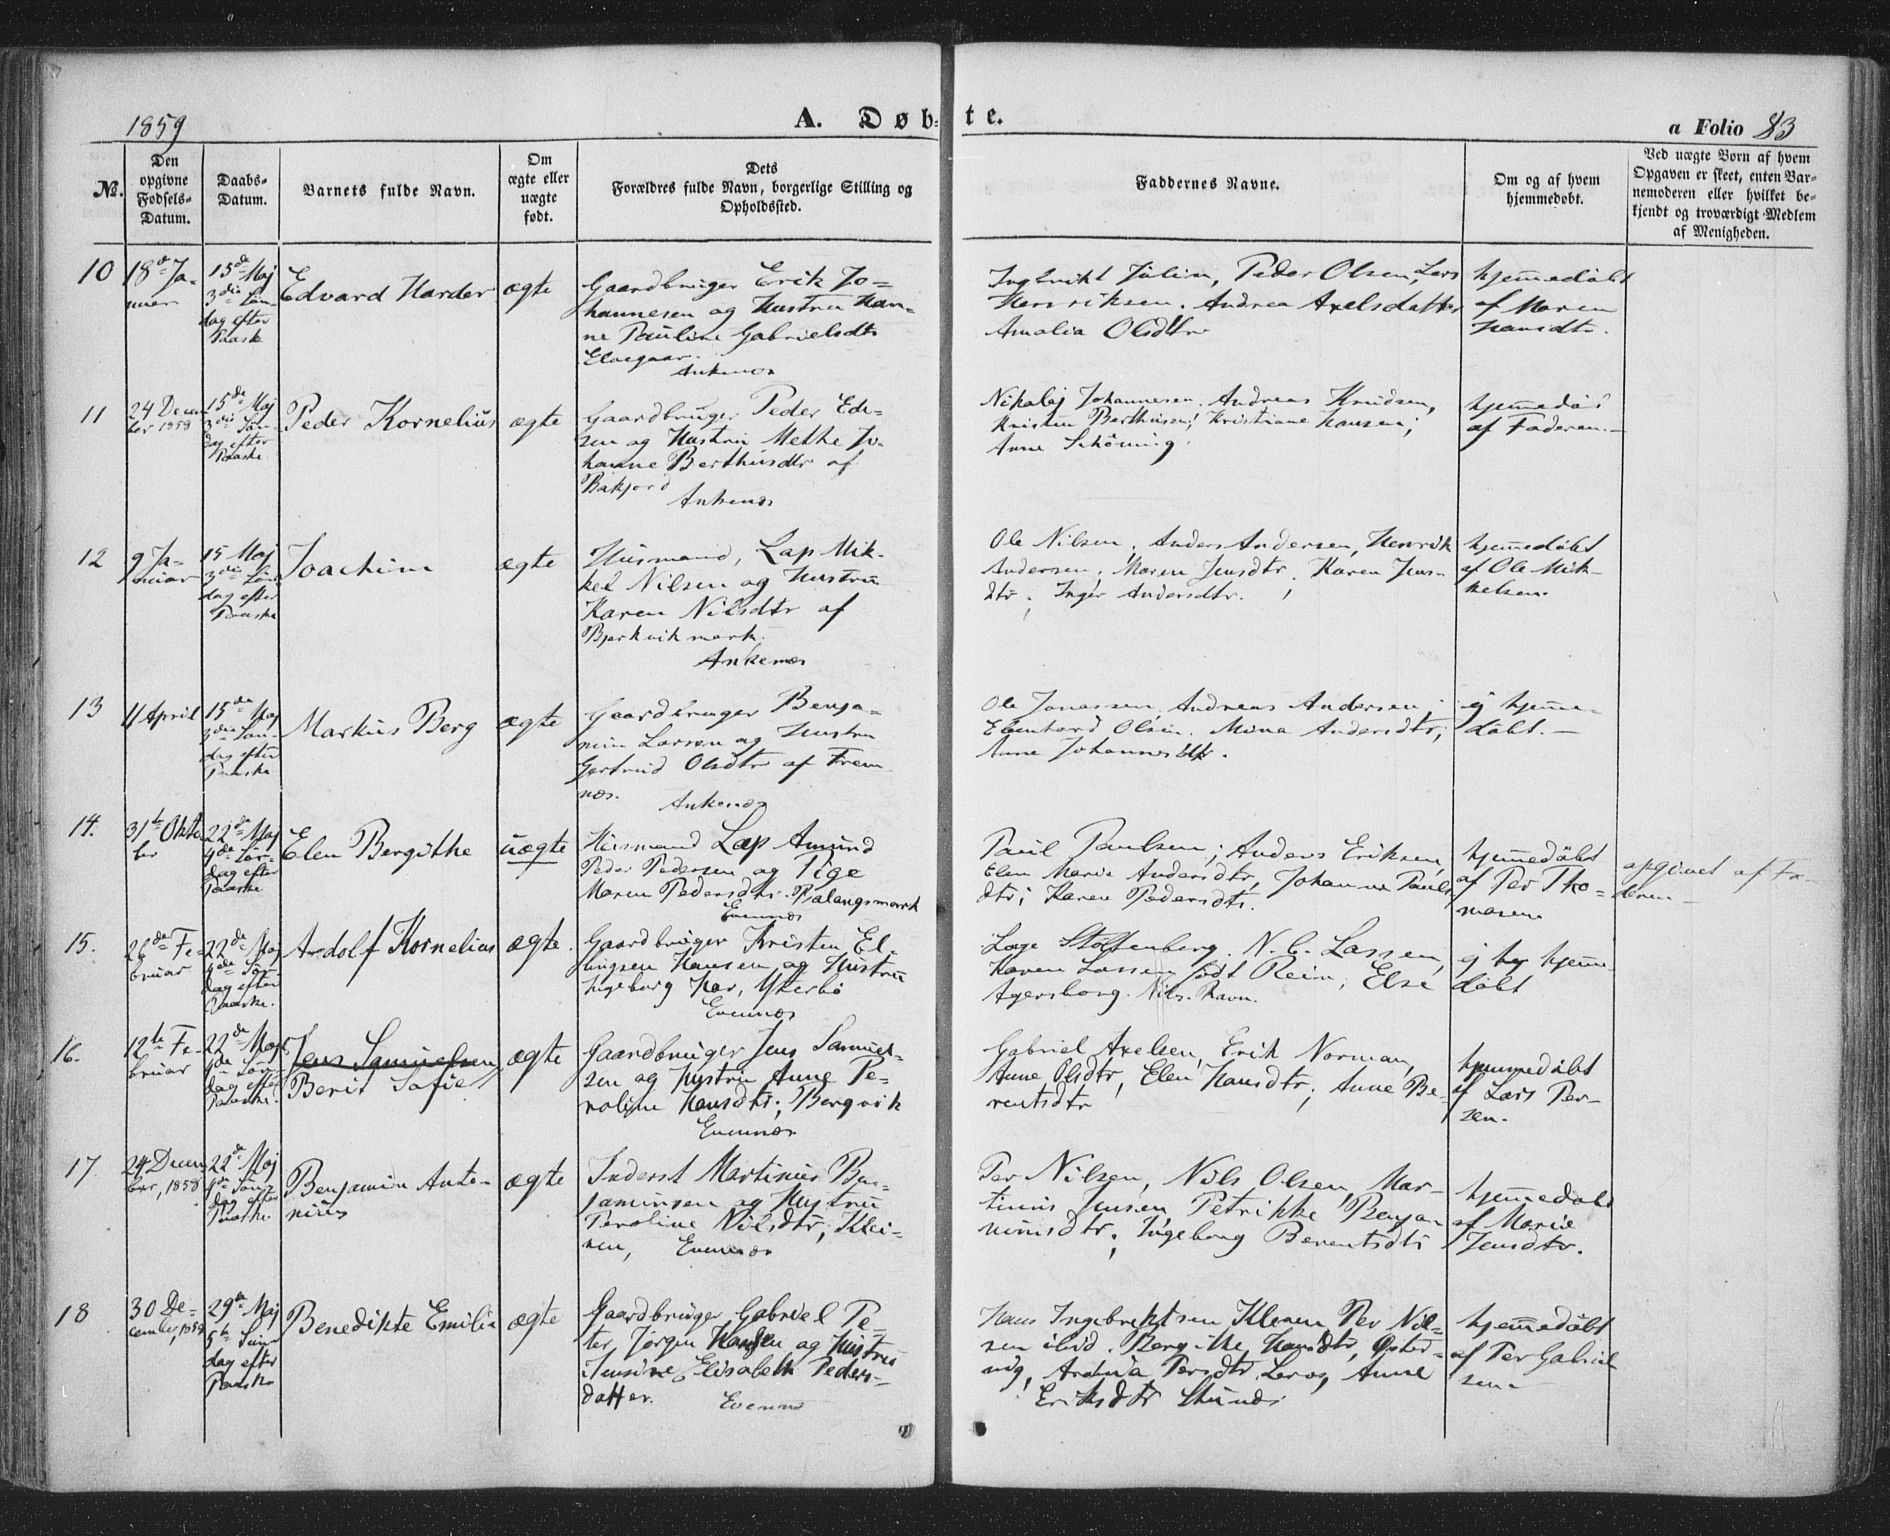 1859
A. Døbte.
a Folio 83
No.
Den opgivne Fødsels-Datum.
Daabs-Datum.
Barnets fulde Navn.
Om ægte eller uægte født.
Dets Forældres fulde Navn, borgerlige Stilling og Opholdssted.
Faddernes Navne.
Om og af hvem hjemmedøbt.
Ved uægte Born af hvem Opgaven er skeet, enten Barnemoderen eller hvilket bekjendt og troværdigt Medlem af Menigheden.
10
18de Ja-
nuar
15de Maj
3die Søn-
dag efter
Paaske
Edvard Harder
ægte
Gaardbruger Erik Jo=
hannesen og Hustru Han-
ne Pauline Gabrielsdtr
Elvegaar.
Ankenæs
Ingbrikt Julin, Peder Olsen, Lars
Henriksen. Andrea Axelsdatter
Amalia Olsdtr
hjemmedøbt
af Maren
Hansdtr.
11
24 Decem
ber 1858
15de Maj
3die Søn-
dag efter
Paaske
Peder Kornelius
ægte
Gaardbruger Peder Ede-
sen og Hustru Methe Jo-
hanne Berthusdtr af
Bakjord
Ankenæs
Nikolaj Johannesen. Andreas Knudsen,
Kristen Berthusen; Kristiane Hansen;
Anne Schøning.
af Faderen.
12
9 Ja-
nuar
15 Maj
3die Søn-
dag efter
Paaske
Joachim
ægte
Husmand, Lap Mik-
kel Nilsen og Hustru
Karen Nilsdtr af
Bjerkvikmark.
Ankenæs
Ole Nilsen. Anders Andersen, Henrik
Andersen; Maren Jensdtr; Karen Jens-
dtr; Inger Andersdtr.
hjemmedøbt
af Ole Mik-
kelsen.
13
11 April
15de Maj
3die Søn-
dag efter
Paaske
Markus Berg
ægte
Gaardbruger Benja-
min Larsen og Hustru
Gertrud Olsdtr af Frem-
næs.
Ankenæs
Ole Jonassen, Andreas Andersen;
Edenhard Olsen. Mina Andersdtr;
Anne Johannesdtr.
ej hjemme-
døbt.
14.
31te Okto
ber
22de Maj
4de Søn-
dag efter
Paaske
Elen Bergithe
uægte
Husmand Lap Amund
Peder Pedersen og Pige
Maren Pedersdtr. Balangsmark
Evenæs
Paul Paulsen; Anders Eriksen,
Elen Marie Andersdtr, Johanna Pauls
dtr; Karen Pedersdtr.
hjemmedøbt
af Per Tho-
masen
opgivet af Fa-
deren
15.
26de Fe-
bruar
22de Maj
4de Søn-
dag efter
Paaske.
Ardolf Kornelius
ægte.
Gaardbruger Kristen El-
lingsen Hansen og Hustru
Ingeborg Kar, Ytterbø
Evenæs
Lage Stoltenberg. N. C. Lassen,
Karen Lassen født Rein; Else
Agersborg. Nils Ravn.
ej hjemme-
døbt
16.
12te Fe-
bruar
22de Maj
4de Søn-
dag efter
Paaske.
Jens Samuelsen
Berit Sofie
ægte
Gaardbruger Jens Samuel-
sen og Hustru Anne Pe-
roline Hansdtr; Bergvik
Evenæs
Gabriel Axelsen, Erik Norman,
Anne Olsdtr, Elen Hansdtr; Anne Be-
rentsdtr
hjemmedøbt
af Lars Per-
sen.
17.
24 Decem
ber, 1858
22de Maj
4de Søn-
dag efter
Paaske.
Benjamin Anto-
nius
ægte
Inderst Martinus Ben-
jaminsen og Hustru
Peroline Nilsdtr; Klei-
ven, Evenæs
Per Nilsen, Nils Olsen, Mar-
tinus Jensen Petrikke Benja-
minsdtr; Ingeborg Berentsdtr
hjemmedøbt
af Marie
Jensdtr.
18
30 De-
cember, 1858
29de Maj
5te Søn-
dag efter
Paaske
Benedikte Emilia
ægte
Gaardbruger Gabriel Pe-
ter, Jørgen Hansen og Hustru
Jensine Elisabeth Peders-
datter. Evenæs
Hans Ingebriktsen Kleven Per Nil-
sen ibid. Bergithe Hansdtr, Øster-
vig, Persdtr Anne
Eriksdtr
hjemmedøbt
af Per Gabriel
sen